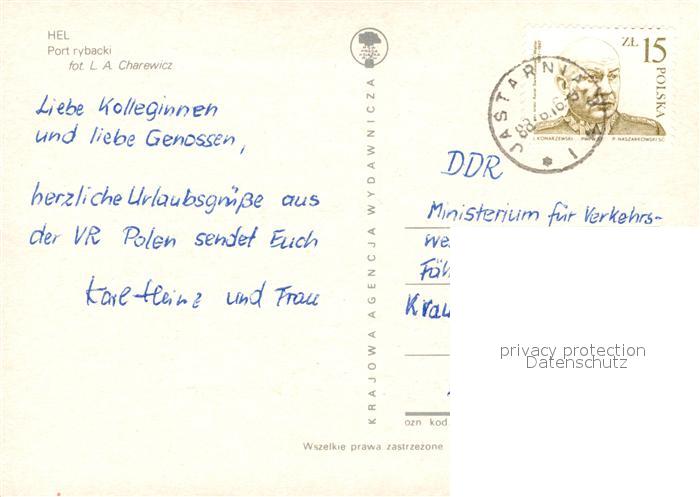 HEL
Port rybacki
fot. L. A. Charewicz
Liebe Kolleginnen
und liebe Genossen,
herzliche Urlaubsgrüße aus
der VR Polen sendet Euch
Karl-Heinz und Frau
KRAJOWA AGENCJA WYDAWNICZA
ZŁ 15
POLSKA
J. KONARZEWSKI
P. NASZARKOWSKI SC.
JASTARNIA
DDR
Ministerium für Verkehrs-
we
Fäh
Krau
ozn kod.
Wszelkie prawa zastrzeżone
privacy protection
Datenschutz